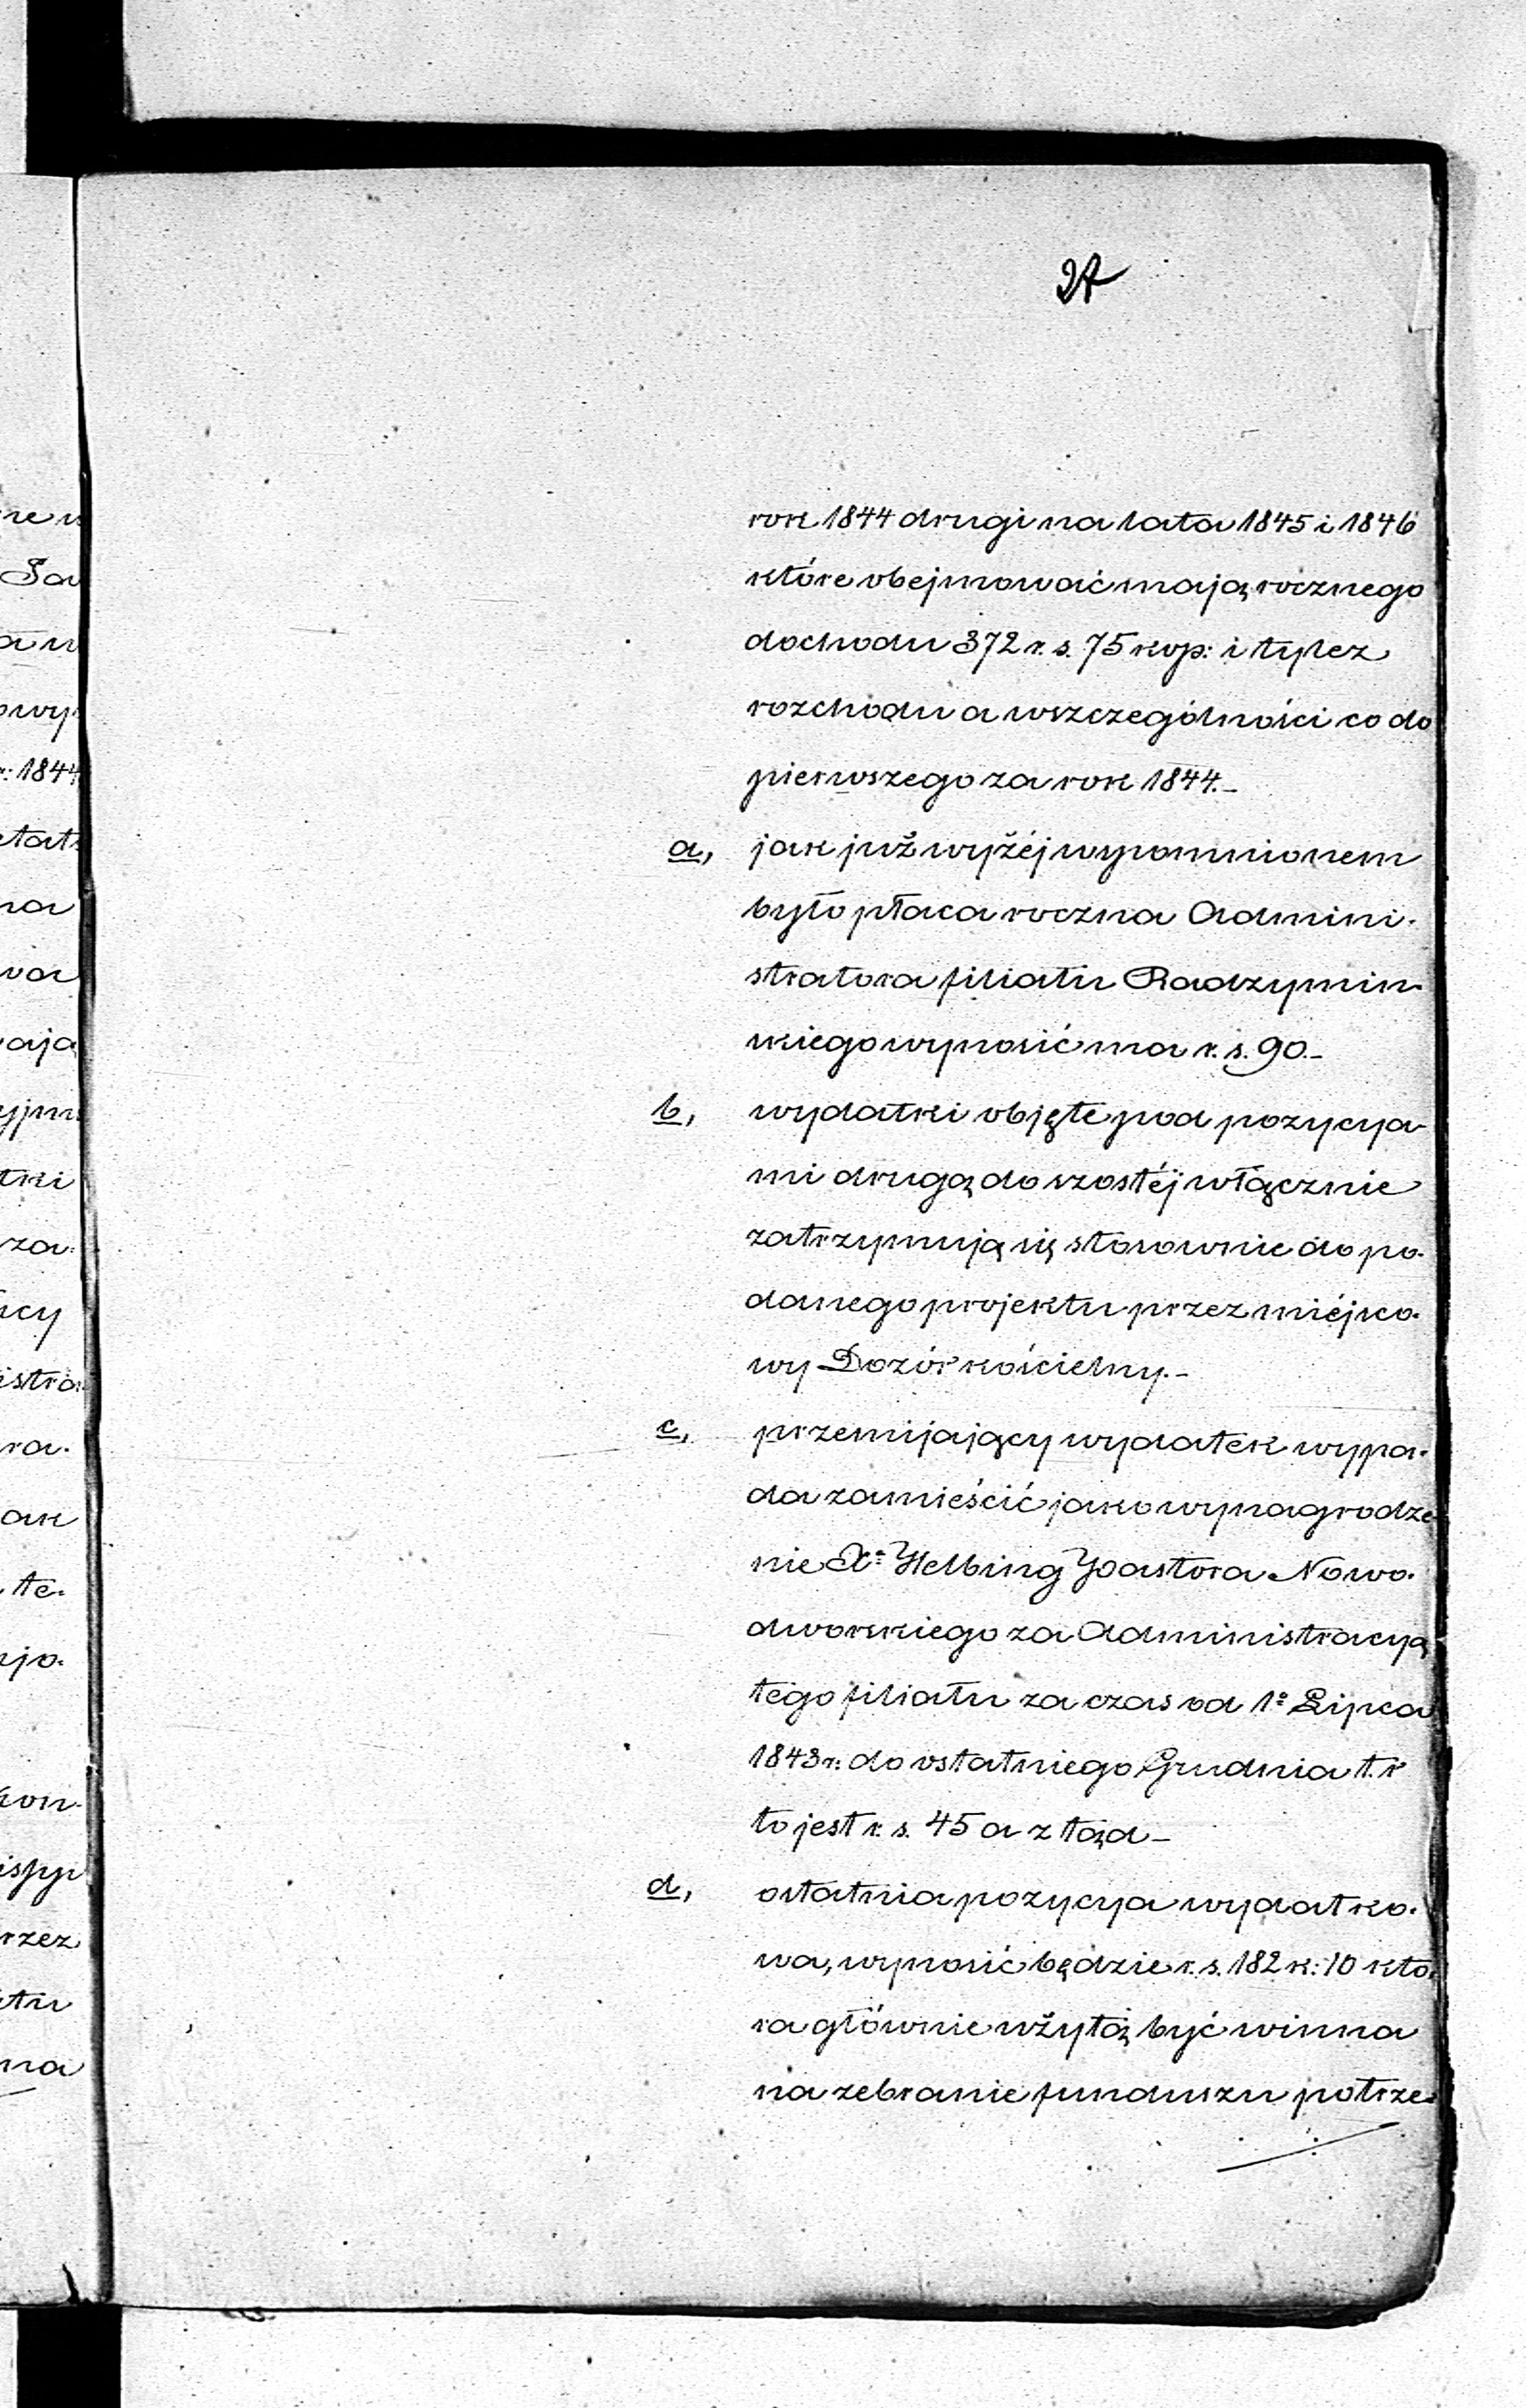 27
rok 1844 drugi na lata 1845 i 1846
które obejmować mają rocznego
dochodu 372 r. s. 75 kop: i tylez
rozchodu a wszczególności co do
pierwszego za rok 1844.–
a, jak już wyżéj wspomnionem
było płaca roczna Admini-
stratora filiatu Radzymin-
skiego wynosić ma r. s. 90.–
b, wydatki objęte pod pozycya-
mi drugą do szostéj włącznie
zatrzymują się stosownie do po-
danego projektu przez miéjsco-
wy Dozór kościelny.–
c, przemijający wydatek wypa-
da zamieścić jako wynagrodze-
nie Xa Helbing Pastora Nowo-
dworskiego za Administracyą
tego filiatu za czas od 1o Lipca
1843 r: do ostatniego Grudnia t. r
to jest r. s. 45 a z tąd –
d, ostatnia pozycya wydatko-
wa, wynosić będzie r. s. 182 k: 10 któ-
ra głównie użytą być winna
na zebranie funduszu potrze-